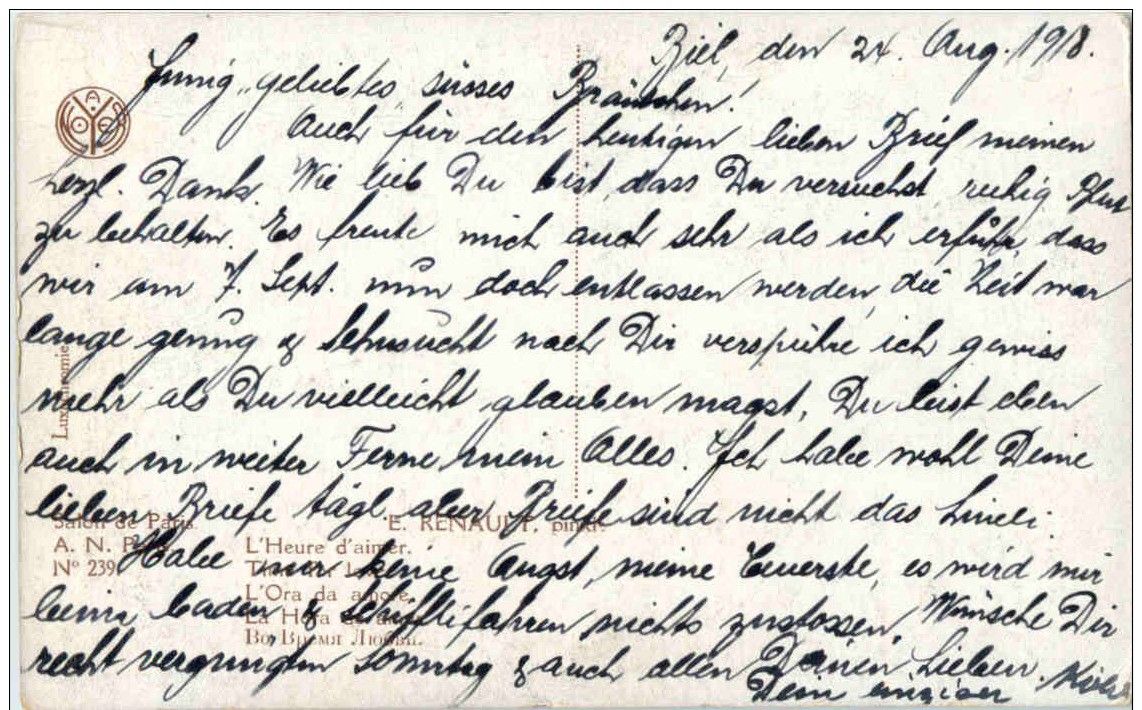 Biel, den 24. Aug. 1918.
Innig „geliebtes" süsses Bräutchen!
Auch für den heutigen lieben Brief meinen
herzl. Dank. Wie lieb Du bist, dass Du versuchst, ruhig Blut
zu behalten. Es freute mich auch sehr als ich erfuhr, dass
wir am 7. Sept. nun doch entlassen werden, die Zeit war
lange genug & Sehnsucht nach Dir verspühre ich gewiss
mehr als Du vielleicht glauben magst. Du bist eben
auch in weiter Ferne mein Alles. Ich habe wohl Deine
lieben Briefe tägl aber Briefe sind nicht das Lineli
Habe nur keine Angst, meine Teuerste, es wird mir
beim baden & schifflifahren nichts zustossen. Wünsche Dir
recht vergnügten Sonntag & auch allen Deinen Lieben.
Dein einziger
Salon de Paris.
E. RENAULT. pinx.
A. N. P.
N° 239
L'Heure d'aimer.
L'Ora da amore.
La Hora
Время Любви.